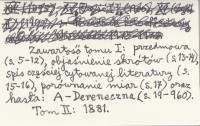 Zawartość tomu I: przedmowa
(s. 5-12), objaśnienie skrótów (s. 13-14),
spis częściej cytowanej literatury (s.
15-16), porównanie miar (s. 17) oraz
hasła: A - Dereneczna (s. 19-960).
Tom II: 1881.